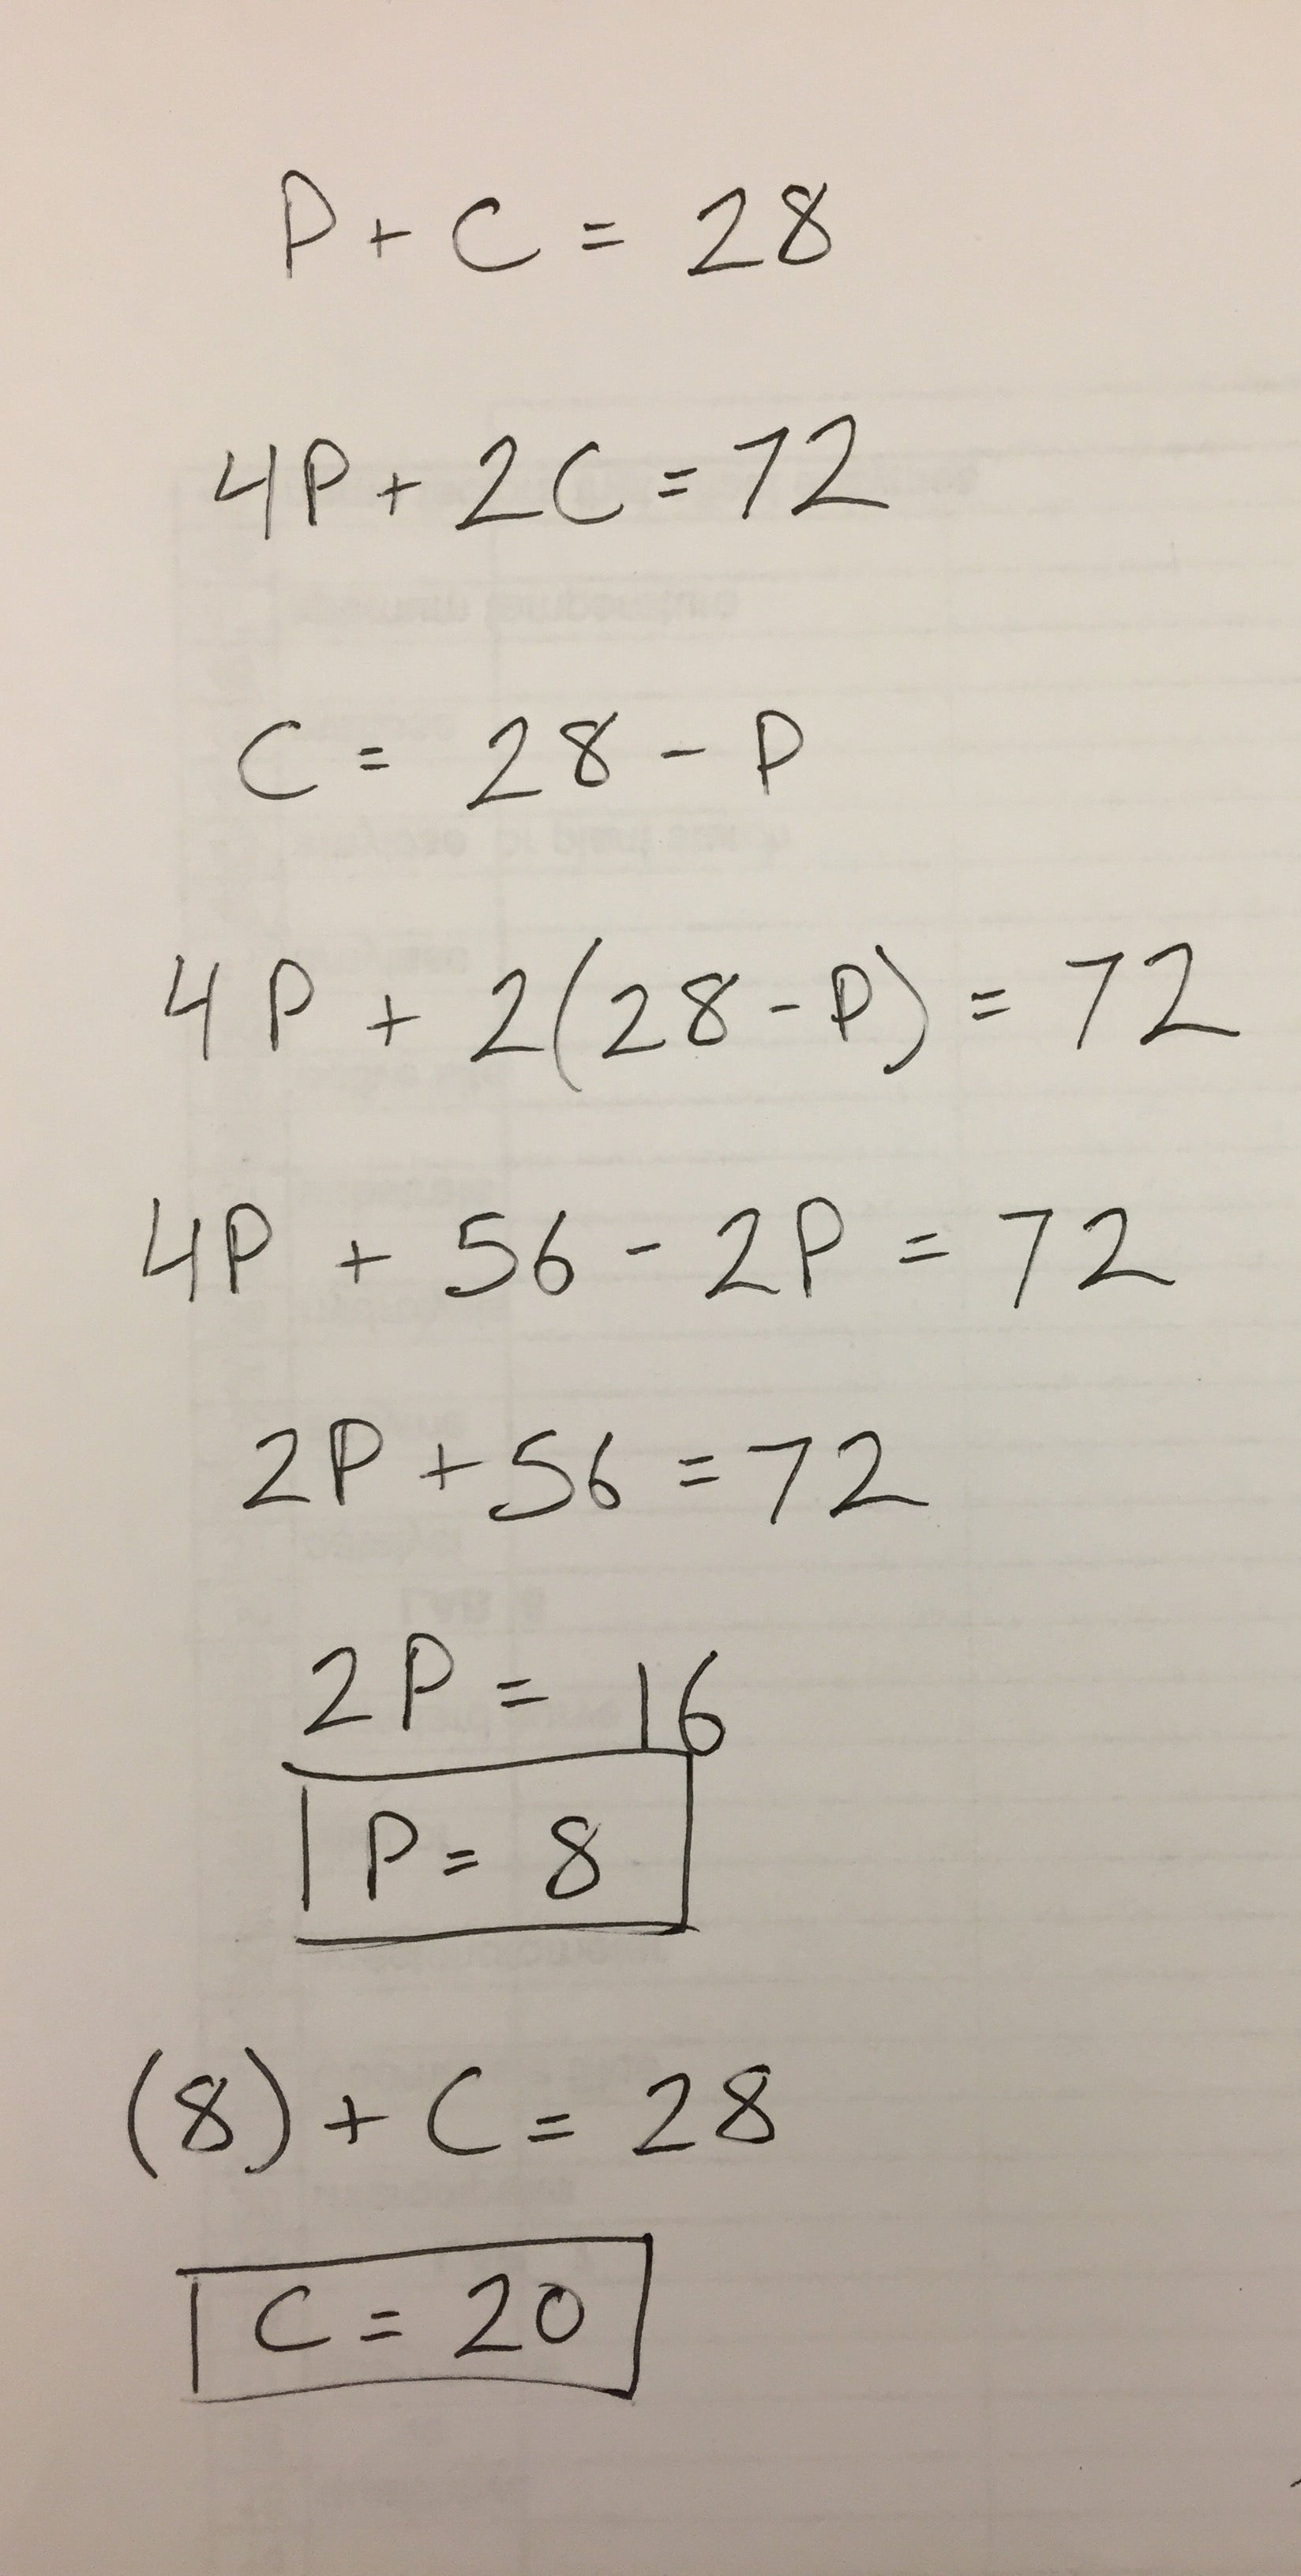 P + C = 28
4P + 2C = 72
C = 28 - P
4P + 2(28 - P) = 72
4P + 56 - 2P = 72
2P + 56 = 72
2P = 16
P = 8
(8) + C = 28
C = 20